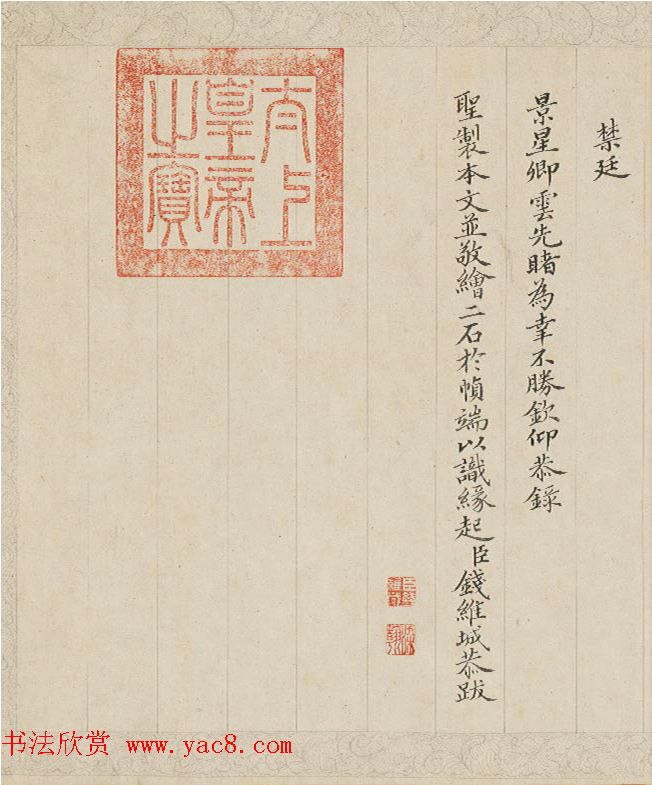 禁廷
景星卿雲先睹為幸不勝欽仰恭錄
聖製本文並敬繪二石於幀端以識緣起臣錢維城恭跋
太上皇帝之寶
书法欣赏 www.yac8.com